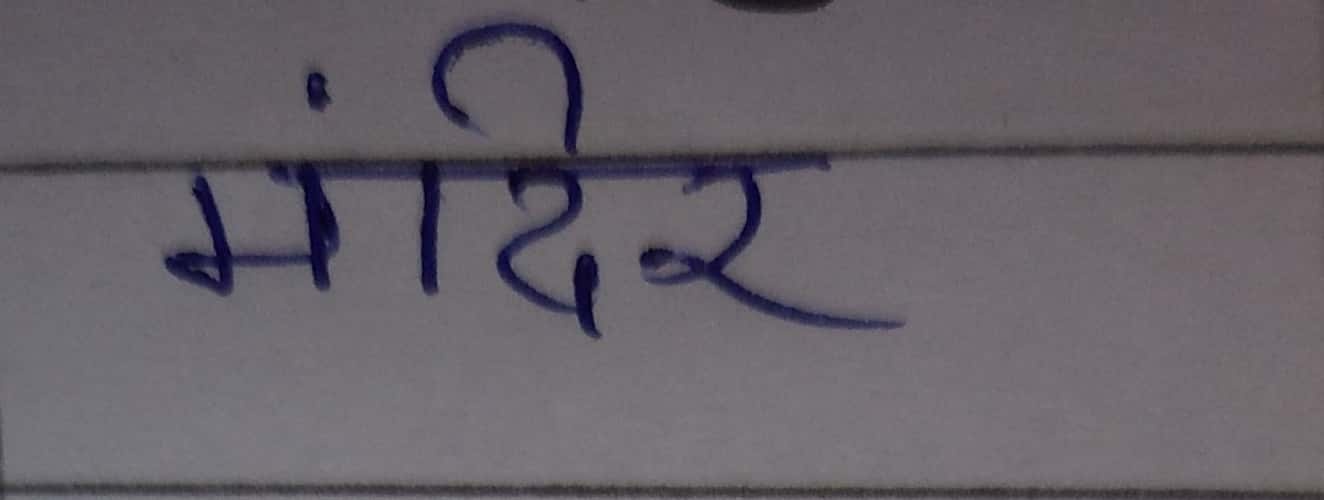 मंदिर